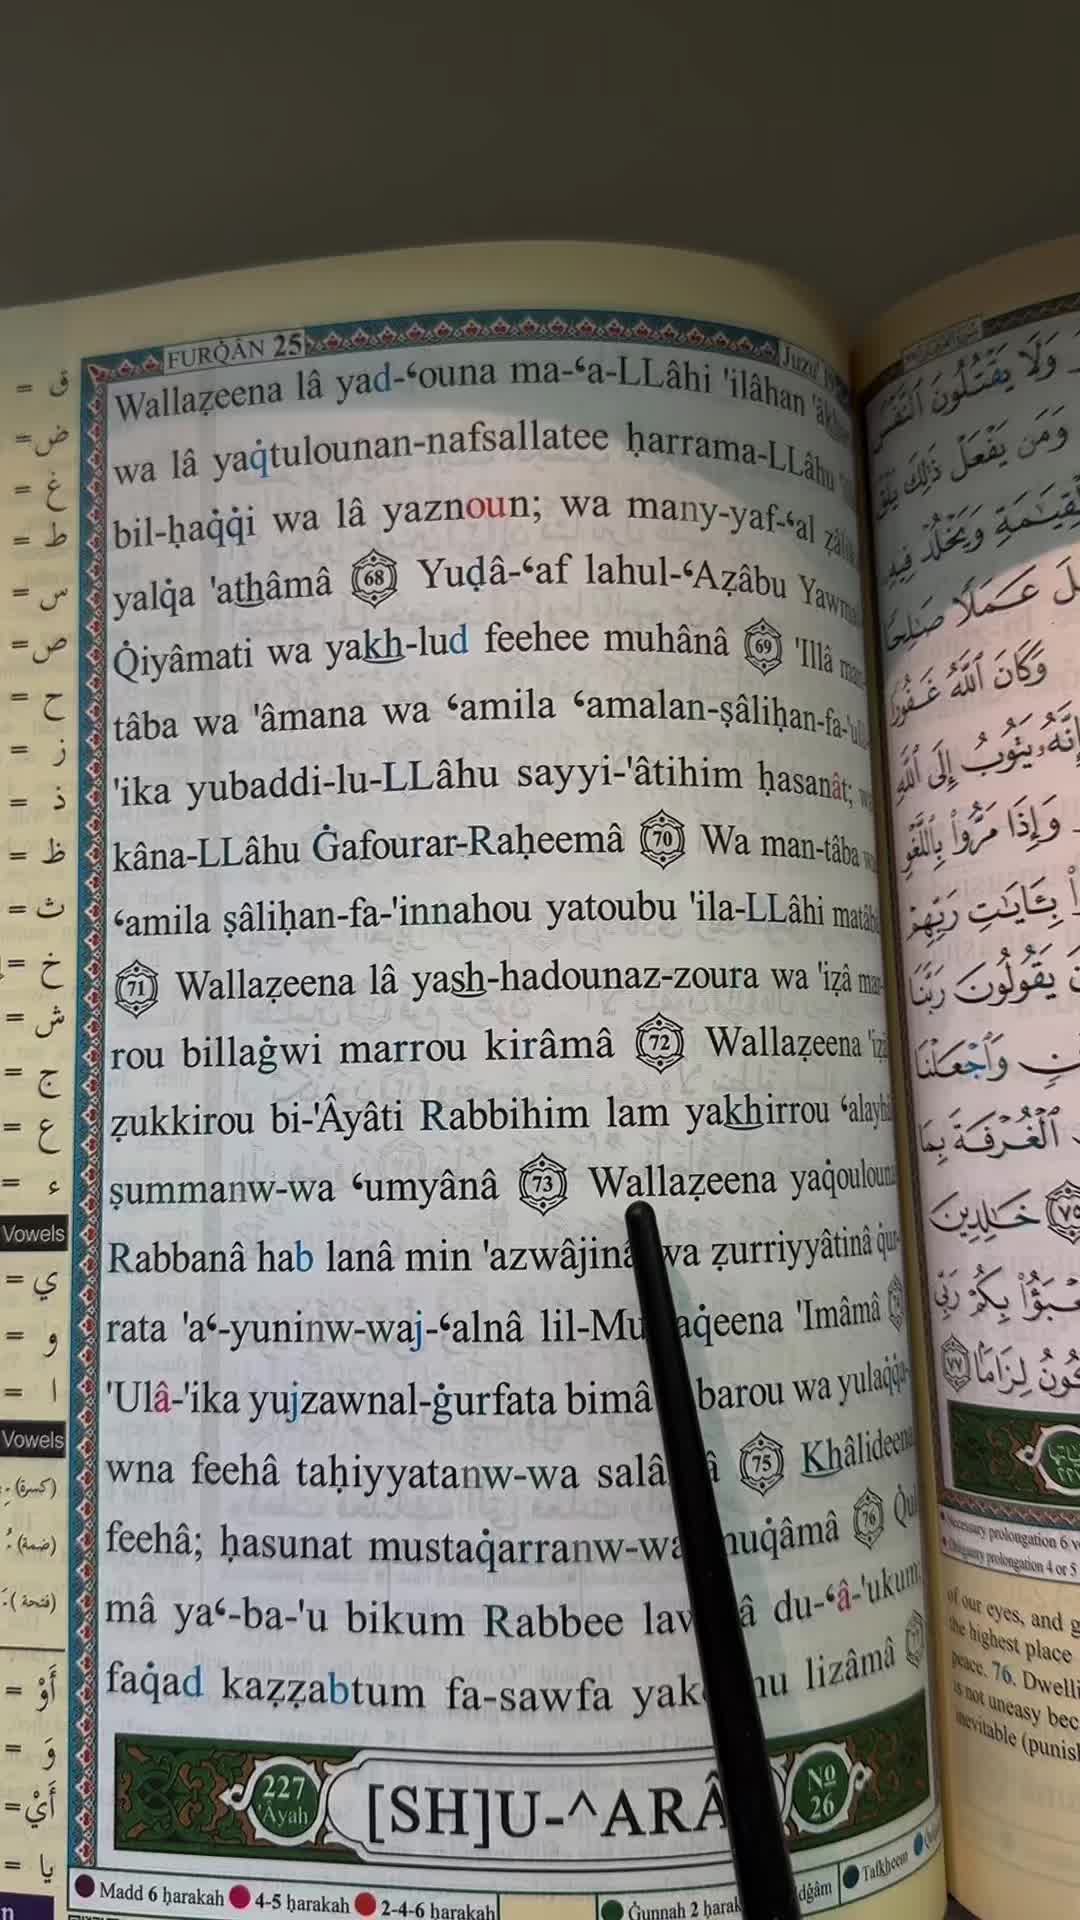 FURQ̇ÂN 25
Wallaẓeena lâ yad-ʻouna ma-ʻa-LLâhi 'ilâhan
wa lâ yaq̇tulounan-nafsallatee ḥarrama-LLâhu
bil-ḥaq̇q̇i wa lâ yaznoun; wa many-yaf-ʻal
yalq̇a 'athâmâ 68 Yuḍâ-ʻaf lahul-ʻAẓâbu
Q̇iyâmati wa yakh-lud feehee muhânâ 69 'Illâ
tâba wa 'âmana wa ʻamila ʻamalan-ṣâliḥan-fa-
'ika yubaddi-lu-LLâhu sayyi-'âtihim ḥasanât;
kâna-LLâhu Ġafourar-Raḥeemâ 70 Wa man-tâba
ʻamila ṣâliḥan-fa-'innahou yatoubu 'ila-LLâhi
71 Wallaẓeena lâ yash-hadounaz-zoura wa 'iẓâ
rou billaġwi marrou kirâmâ 72 Wallaẓeena
ẓukkirou bi-'Âyâti Rabbihim lam yakhirrou
ṣummanw-wa ʻumyânâ 73 Wallaẓeena yaq̇oulouna
Rabbanâ hab lanâ min wa ẓurriyyâtinâ
rata 'aʻ-yuninw-waj-ʻalnâ 'Imâmâ
'Ulâ-'ika yujzawnal-ġurfata bimâ wa
wna feehâ taḥiyyatanw-wa 75 Khâlideena
feehâ; ḥasunat 76
mâ yaʻ-ba-'u bikum Rabbee du-ʻâ-'ukum;
faq̇ad kaẓẓabtum fa-sawfa lizâmâ
227
'Âyah
No
26
Madd 6 ḥarakah 4-5 ḥarakah 2-4-6 ḥarakah
Ġunnah 2 Tafkḥeem
ق =
ض =
غ =
ط =
س =
ص =
ح =
ز =
ذ =
ظ =
ث =
خ =
ش =
ج =
ع =
ء =
Vowels
ي =
و =
ا =
Vowels
(كسرة)
(ضمة)
(فتحة)
أَوْ =
وَ =
أَيْ =
يا =
وَلَا يَقْتُلُونَ ٱلنَّفْسَ
وَمَن يَفْعَلْ ذَٰلِكَ
وَيَخْلُدْ فِيهِ
عَمَلًا صَٰلِحًا
وَكَانَ ٱللَّهُ
يَتُوبُ إِلَى ٱللَّهِ
وَإِذَا مَرُّوا۟ بِٱللَّغْوِ
بِـَٔايَٰتِ رَبِّهِمْ
يَقُولُونَ رَبَّنَا
وَٱجْعَلْنَا
ٱلْغُرْفَةَ بِمَا
٧٥ خَٰلِدِينَ
بِكُمْ رَبِّى
لِزَامًا ٧٧
Necessary prolongation 6
prolongation 4 or 5
of our eyes, and
the highest place
peace. 76.
is not uneasy
inevitable